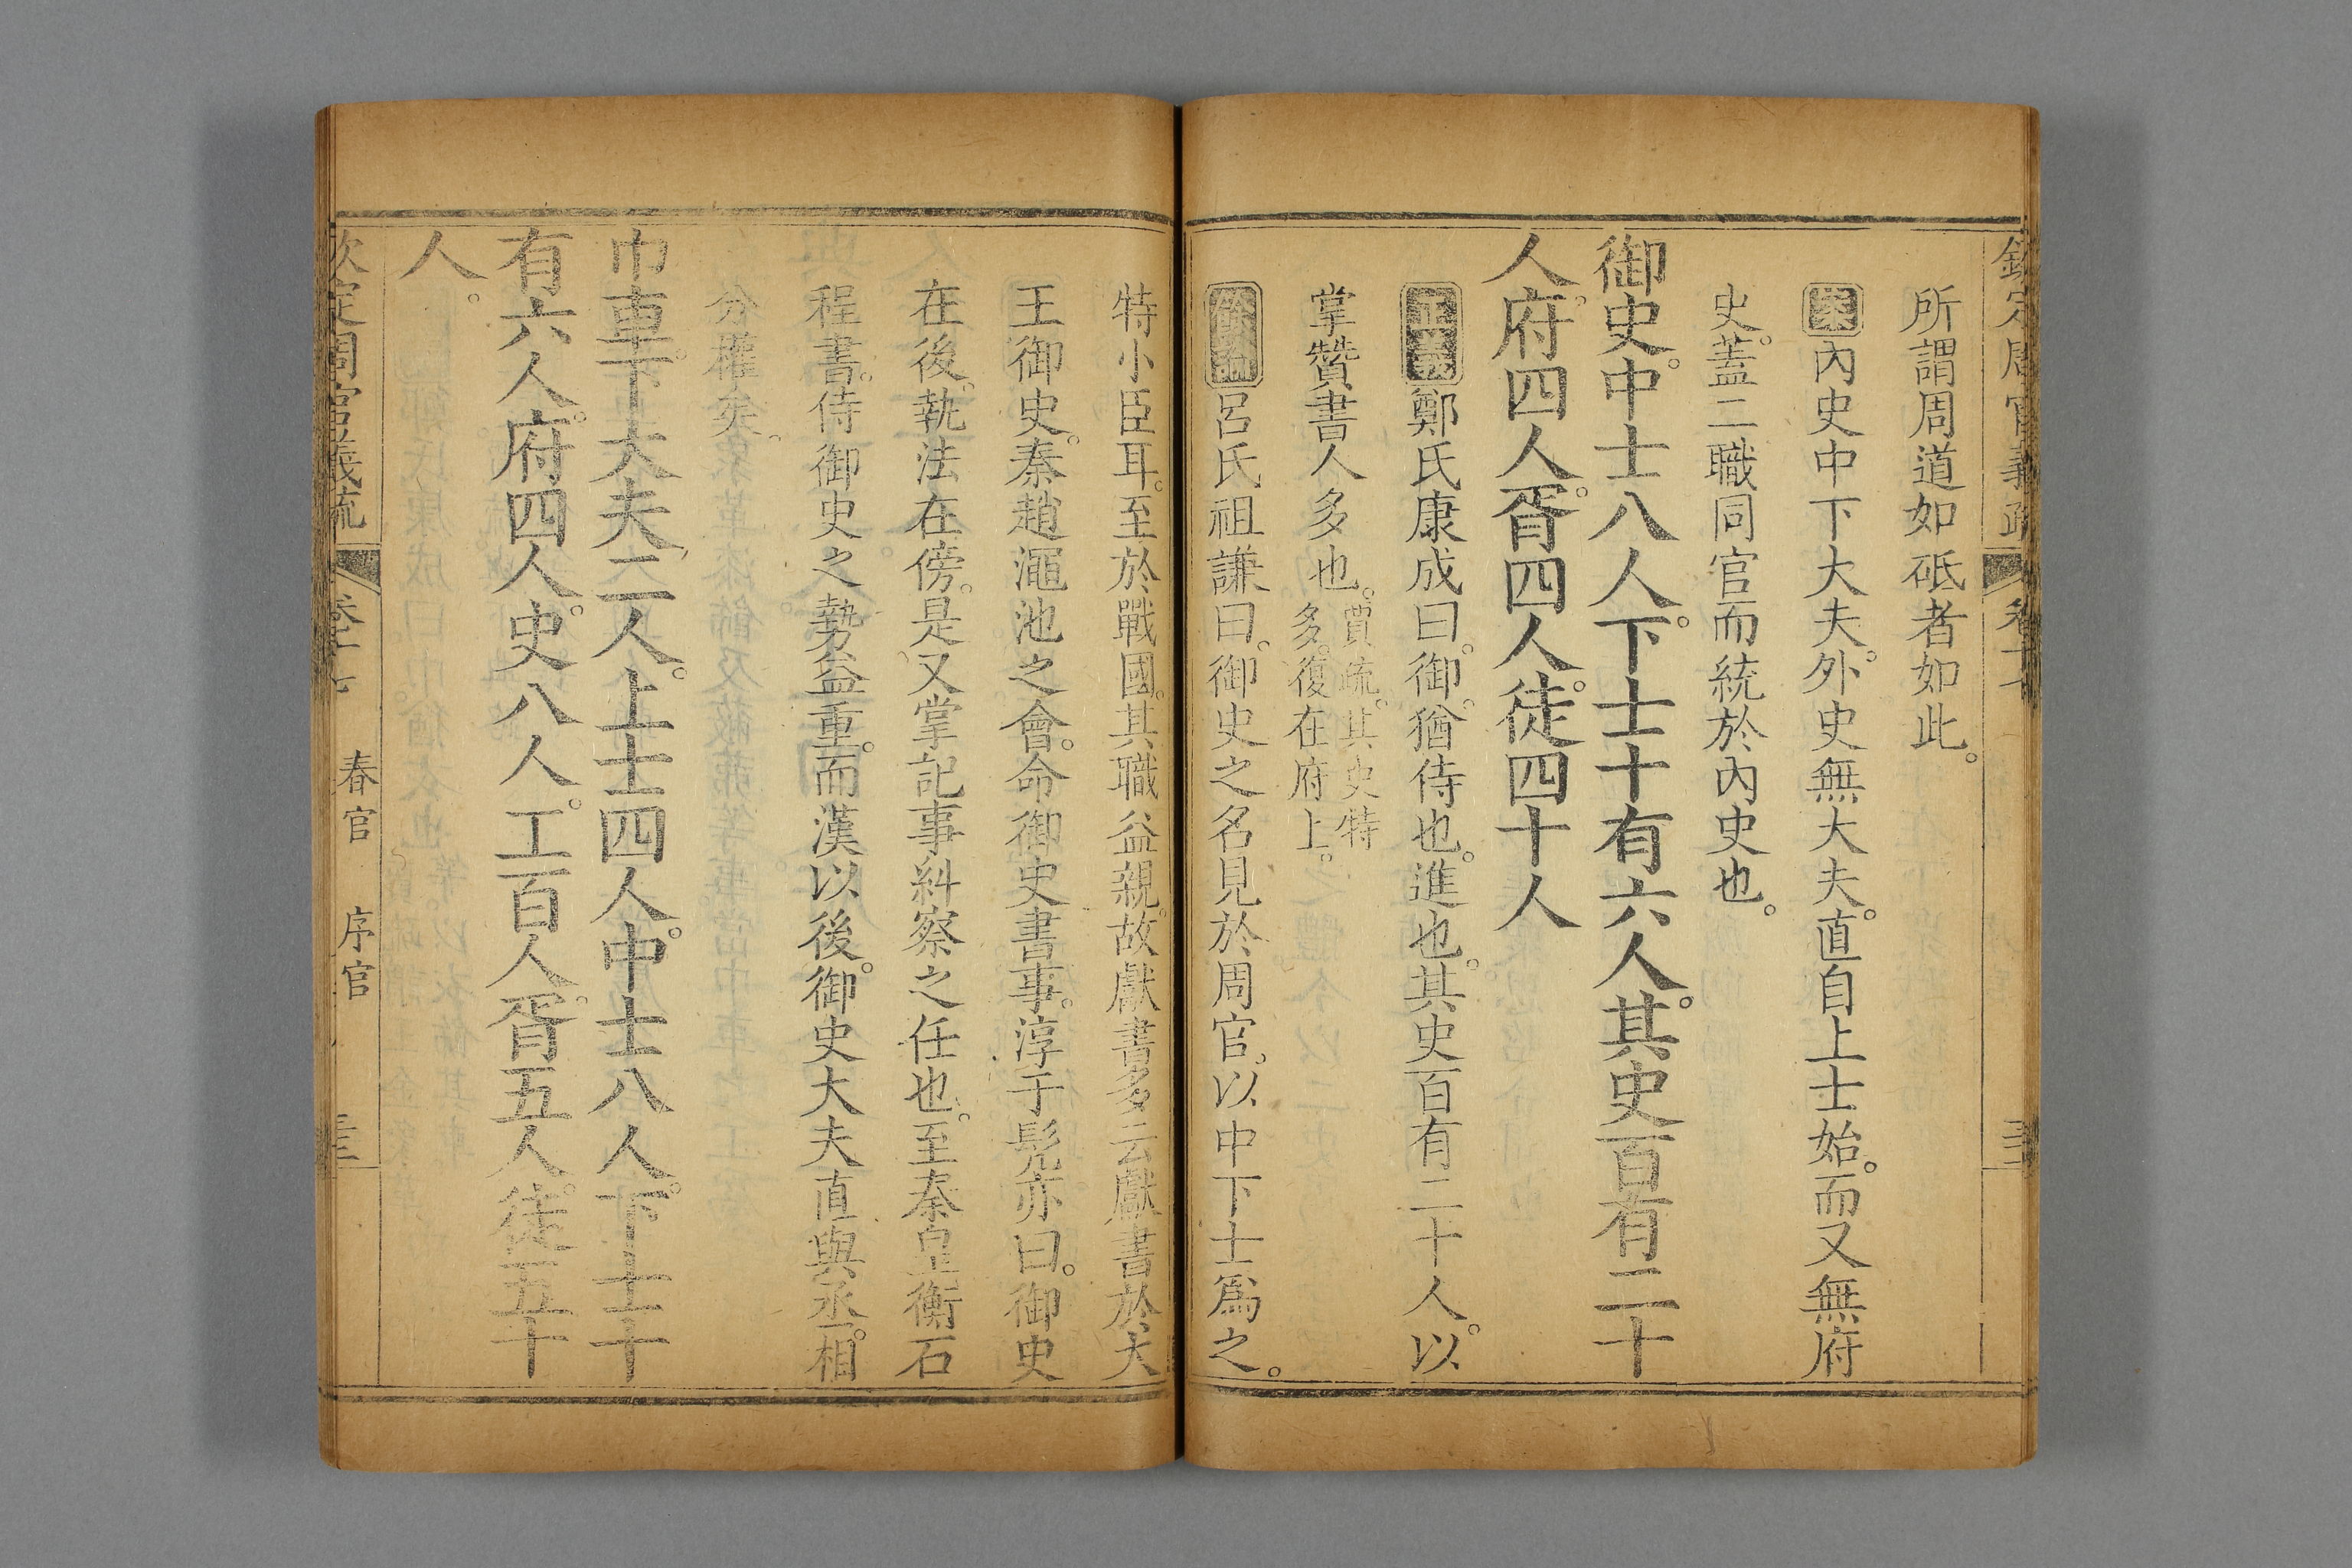 所謂周道如砥者如此。
案內史中下大夫。外史無大夫。直自上士始。而又無府
史。蓋二職同官而統於內史也。
御史。中士八人。下士十有六人。其史百有二十
人。府四人。胥四人。徒四十人
正義鄭氏康成曰。御。猶侍也。進也。其史百有二十人。以
掌贊書人多也。
賈疏。其史特
多。復在府上。
呂氏祖謙曰。御史之名見於周官。以中下士爲之。
特小臣耳。至於戰國。其職益親。故獻書多云獻書於大
王御史。秦趙澠池之會。命御史書事。淳于髡亦曰。御史
在後。執法在傍。是又掌記事糾察之任也。至秦皇衡石
程書。侍御史之勢益重。而漢以後。御史大夫直與丞相。
分權矣。
巾車。下大夫二人。上士四人。中士八人。下士十
有六人。府四人。史八人。工百人。胥五人。徒五十
人。
欽定周官義疏 卷十七 春官 序官